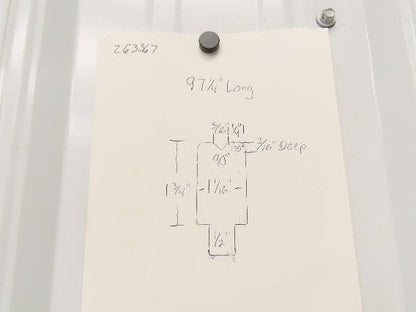 263367
97 1/4" Long
5/16" 1/4"
3/16" Deep
90°
1 3/4"
1 1/16"
1/2"